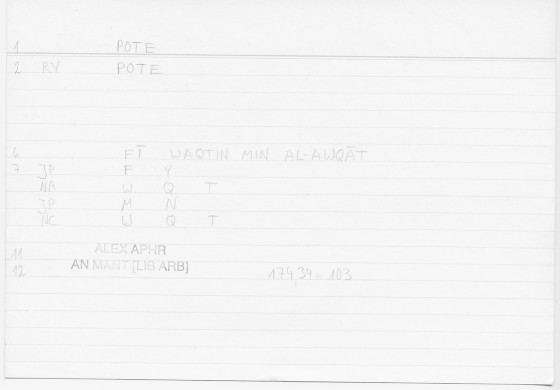 1 POTE
2 RV POTE
6 FĪ WAQTIN MIN AL-AWQĀT
7 JP F Y
NA W Q T
JP M N
NC W Q T
11 ALEX APHR
12 AN MANT [LIB ARB] 174,34 - 103